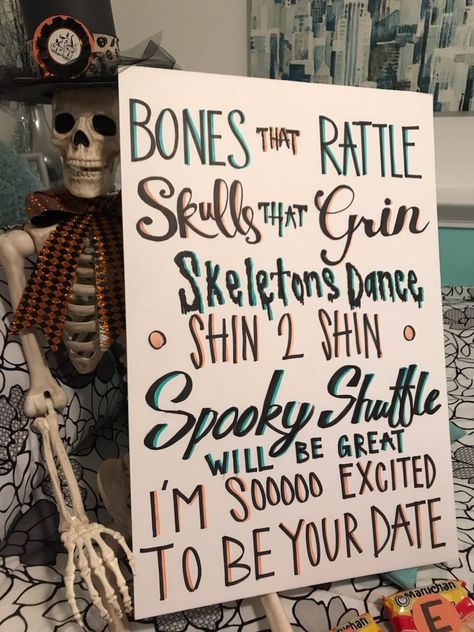 BONES THAT RATTLE
Skulls THAT Grin
Skeletons Dance
• SHIN 2 SHIN •
Spooky Shuffle
WILL BE GREAT
I'M SOOOOO EXCITED
TO BE YOUR DATE
Maruchan
E
Maruchan